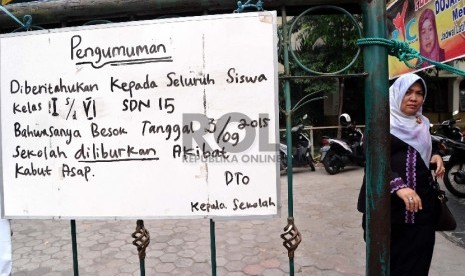 Pengumuman
Diberitahukan Kepada Seluruh Siswa
Kelas : I s/d VI SDN 15
Bahwasanya Besok Tanggal 3/09 2015
Sekolah diliburkan Akibat
Kabut Asap.
DTO
Kepala Sekolah
REPUBLIKA ONLINE